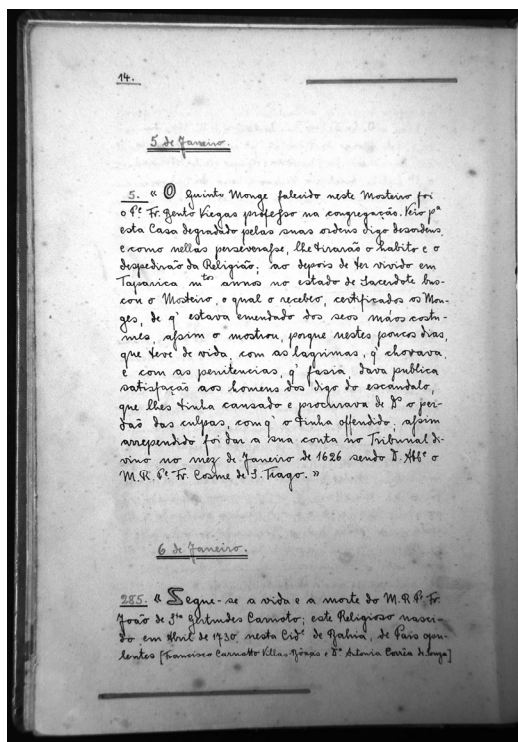 14.
5 de Janeiro.
5. « O Quinto Monge falecido neste Mosteiro foi
o Pe. Fr. Bento Viegas professo na congregação. Veio pª
esta Casa degradado pelas suas ordens digo desordens,
e como nellas perseverasse, lhe tirarão o habito e o
despedirão da Religião; ao depois de ter vivido em
Taparica mtos annos no estado de Sacerdote bus-
cou o Mosteiro, o qual o recebeo, certificados os Mon-
ges, de q' estava emendado dos seos máos costu-
mes, assim o mostrou, porque nestes poucos dias,
que teve de vida, com as lagrimas, q' chorava,
e com as penitencias, q' fasia, dava publica
satisfação aos homens dos digo do escandalo,
que lhes tinha causado e procurava de Ds o per-
dão das culpas, com q' o tinha offendido, assim
arrependido foi dar a sua conta no Tribunal di-
vino no mez de Janeiro de 1626 sendo D. Abbe o
M. R. Pe. Fr. Cosme de S. Tiago. »
6 de Janeiro.
285. « Segue-se a vida e a morte do M. R. Pe. Fr.
João de Sta Gertrudes Carnoto; este Religioso nasci-
do em Abril de 1730, nesta Cide de Bahia, de Pais opu-
lentes [Francisco Carnotto Villas Bôas e Dª Antonia Corrêa de Souza]